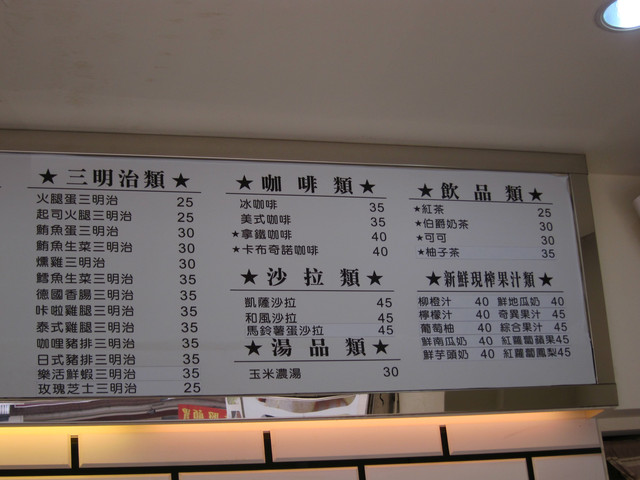 ★ 三明治類 ★
火腿蛋三明治 25
起司火腿三明治 25
鮪魚蛋三明治 30
鮪魚生菜三明治 30
燻雞三明治 30
鱈魚生菜三明治 35
德國香腸三明治 35
咔啦雞腿三明治 35
泰式雞腿三明治 35
咖哩豬排三明治 35
日式豬排三明治 35
樂活鮮蝦三明治 35
玫瑰芝士三明治 25
★ 咖啡類 ★
冰咖啡 35
美式咖啡 35
★拿鐵咖啡 40
★卡布奇諾咖啡 40
★ 沙拉類 ★
凱薩沙拉 45
和風沙拉 45
馬鈴薯蛋沙拉 45
★ 湯品類 ★
玉米濃湯 30
★ 飲品類 ★
★紅茶 25
★伯爵奶茶 30
★可可 30
★柚子茶 35
★新鮮現榨果汁類★
柳橙汁 40 鮮地瓜奶 40
檸檬汁 40 奇異果汁 45
葡萄柚 40 綜合果汁 45
鮮南瓜奶 40 紅蘿蔔蘋果45
鮮芋頭奶 40 紅蘿蔔鳳梨45